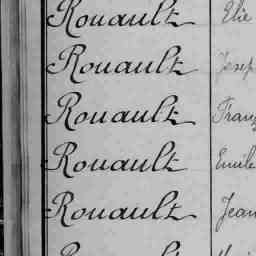 Rouault Elie
Rouault Josep
Rouault Franç
Rouault Emile
Rouault Jean